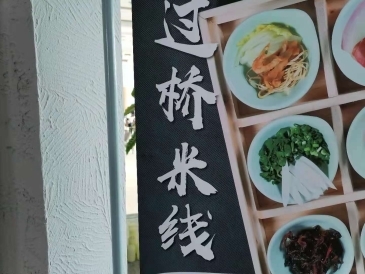 过桥米线